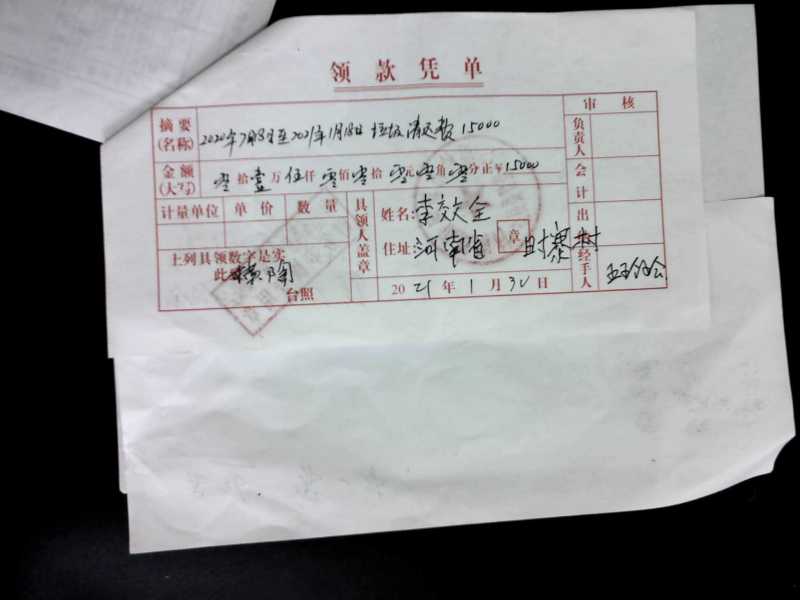 领款凭单
摘要(名称) 2020年7月8日至2021年1月18日 垃圾清运费 15000
审核
负责人
金额(大写) 零拾壹万伍仟零佰零拾零元零角零分正￥15000
会计
计量单位 单价 数量
具领人盖章
姓名: 李交全
出
住址 河南省 章 寨村
上列具领数字是实
此
台照
2021年1月30日
经手人